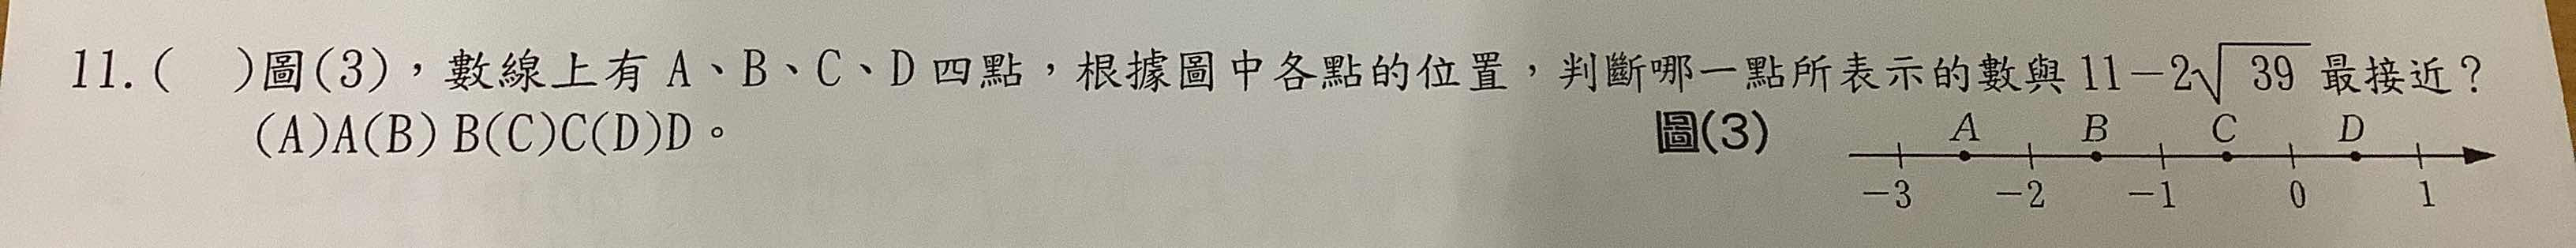 11.(　)圖(3)，數線上有 A、B、C、D 四點，根據圖中各點的位置，判斷哪一點所表示的數與 11－2√39 最接近？
(A)A(B) B(C)C(D)D。
圖(3)
A B C D
－3 －2 －1 0 1